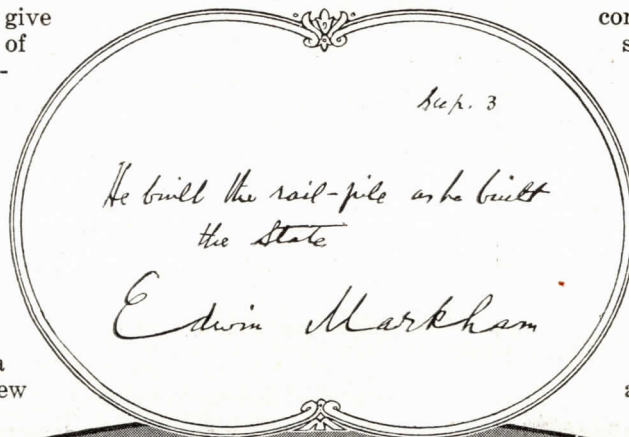 give
of
-
con
s
3
He built the rail-pile as he built
the State
Edwin Markham
a
ew
a